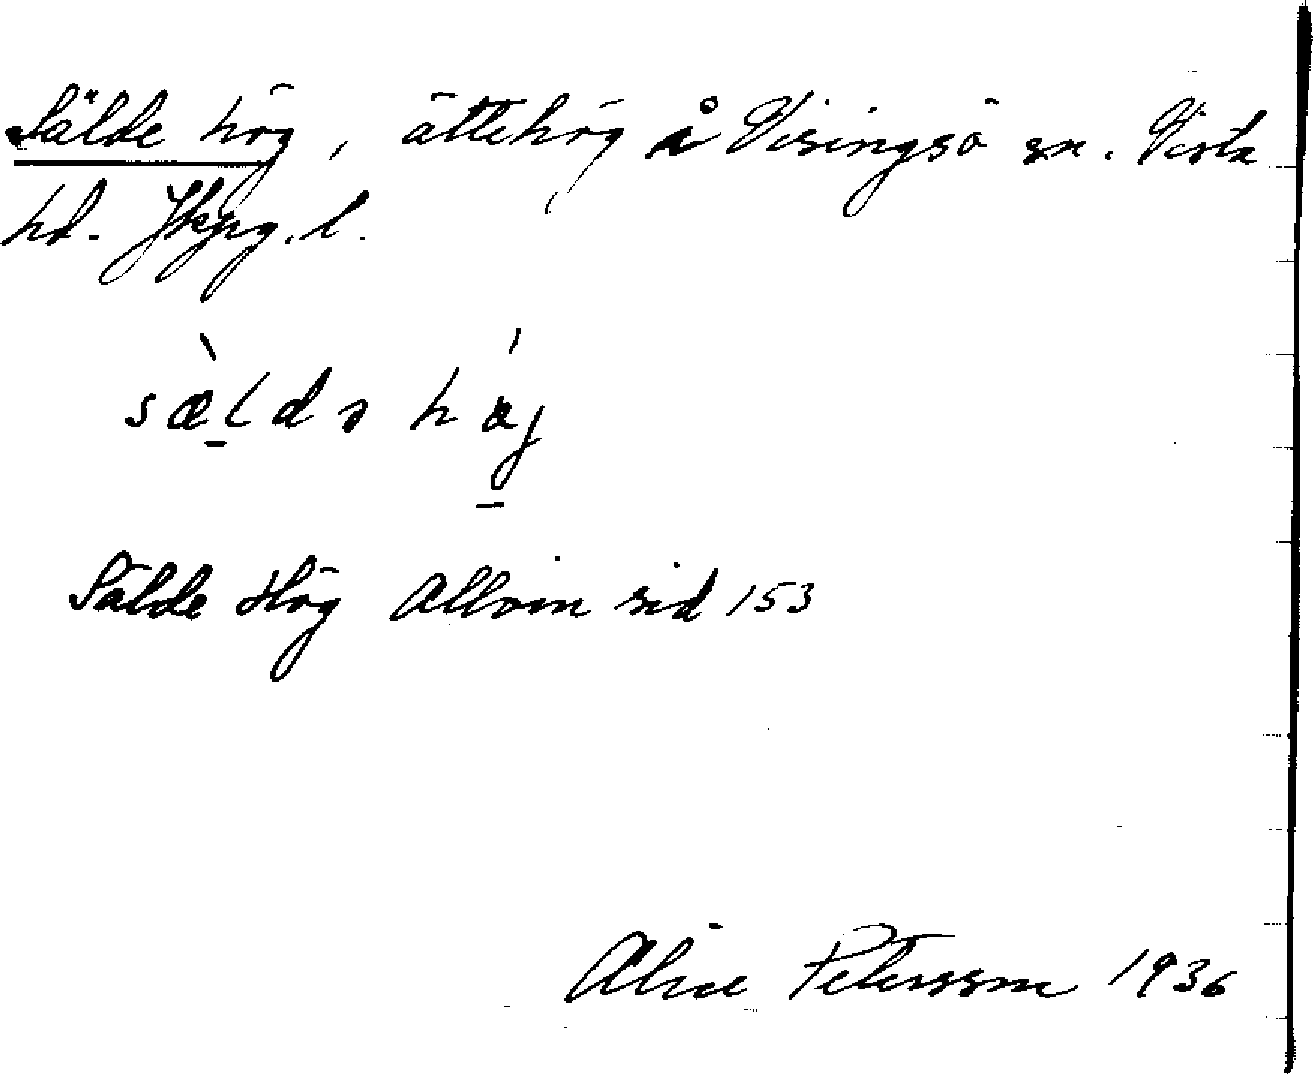 Sälde hög, ättehög å Visingsö sn. Vista
hd. Jkpg. l.
Sälde Hög Allvin sid 153
Alice Petersson 1936